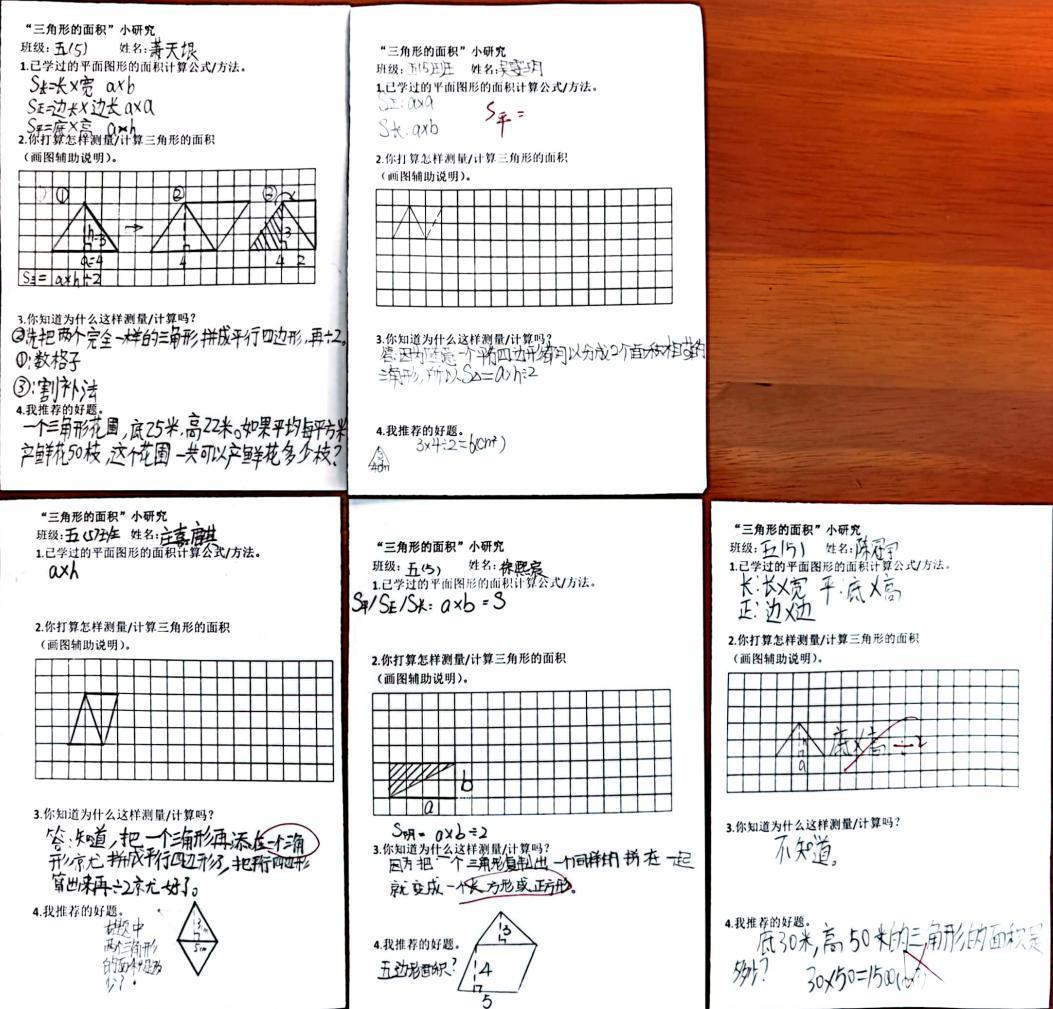 “三角形的面积”小研究
班级：五(5) 姓名：
1.已学过的平面图形的面积计算公式/方法。
S长=长×宽 a×b
S正=边长×边长 a×a
S平=底×高 a×h
2.你打算怎样测量/计算三角形的面积
（画图辅助说明）。
① ② ③
h=3 3
a=4 4 4 2
S三=a×h÷2
3.你知道为什么这样测量/计算吗？
②先把两个完全一样的三角形拼成平行四边形，再÷2。
①：数格子
③：割补法
4.我推荐的好题。
一个三角形花圃，底25米，高22米。如果平均每平方米
产鲜花50枝，这个花圃一共可以产鲜花多少枝？
“三角形的面积”小研究
班级：五(5)班 姓名：
1.已学过的平面图形的面积计算公式/方法。
S正：a×a
S长：a×b
S平=
2.你打算怎样测量/计算三角形的面积
（画图辅助说明）。
3.你知道为什么这样测量/计算吗？
答：因为任意一个平行四边形都可以分成2个面积相等的
三角形，所以S△=a×h÷2
4.我推荐的好题。
3×4÷2=6(cm²)
“三角形的面积”小研究
班级：五(5)班 姓名：庄嘉麒
1.已学过的平面图形的面积计算公式/方法。
a×h
2.你打算怎样测量/计算三角形的面积
（画图辅助说明）。
3.你知道为什么这样测量/计算吗？
答：知道，把一个三角形再添在一个三角
形京尤拼成平行四边形了，把平行四边形
算出来再÷2京尤好了。
4.我推荐的好题。
两个三角形
的面积是多
少？
“三角形的面积”小研究
班级：五(5) 姓名：徐熙宸
1.已学过的平面图形的面积计算公式/方法。
S平/S正/S长：a×b=S
2.你打算怎样测量/计算三角形的面积
（画图辅助说明）。
b
a
S阴=a×b÷2
3.你知道为什么这样测量/计算吗？
因为把一个三角形复制出一个同样的拼在一起
就变成一个长方形或正方形。
4.我推荐的好题。
五边形面积？
3
4
5
“三角形的面积”小研究
班级：五(5) 姓名：陈冠宇
1.已学过的平面图形的面积计算公式/方法。
长：长×宽 平：底×高
正：边×边
2.你打算怎样测量/计算三角形的面积
（画图辅助说明）。
底×高÷2
h
a
3.你知道为什么这样测量/计算吗？
不知道。
4.我推荐的好题。
底30米，高50米的三角形的面积是
多少？ 30×50=1500